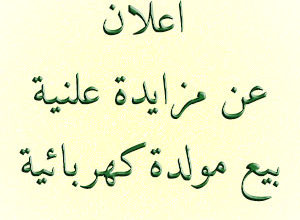 اعلان
عن مزايدة علنية
بيع مولدة كهربائية